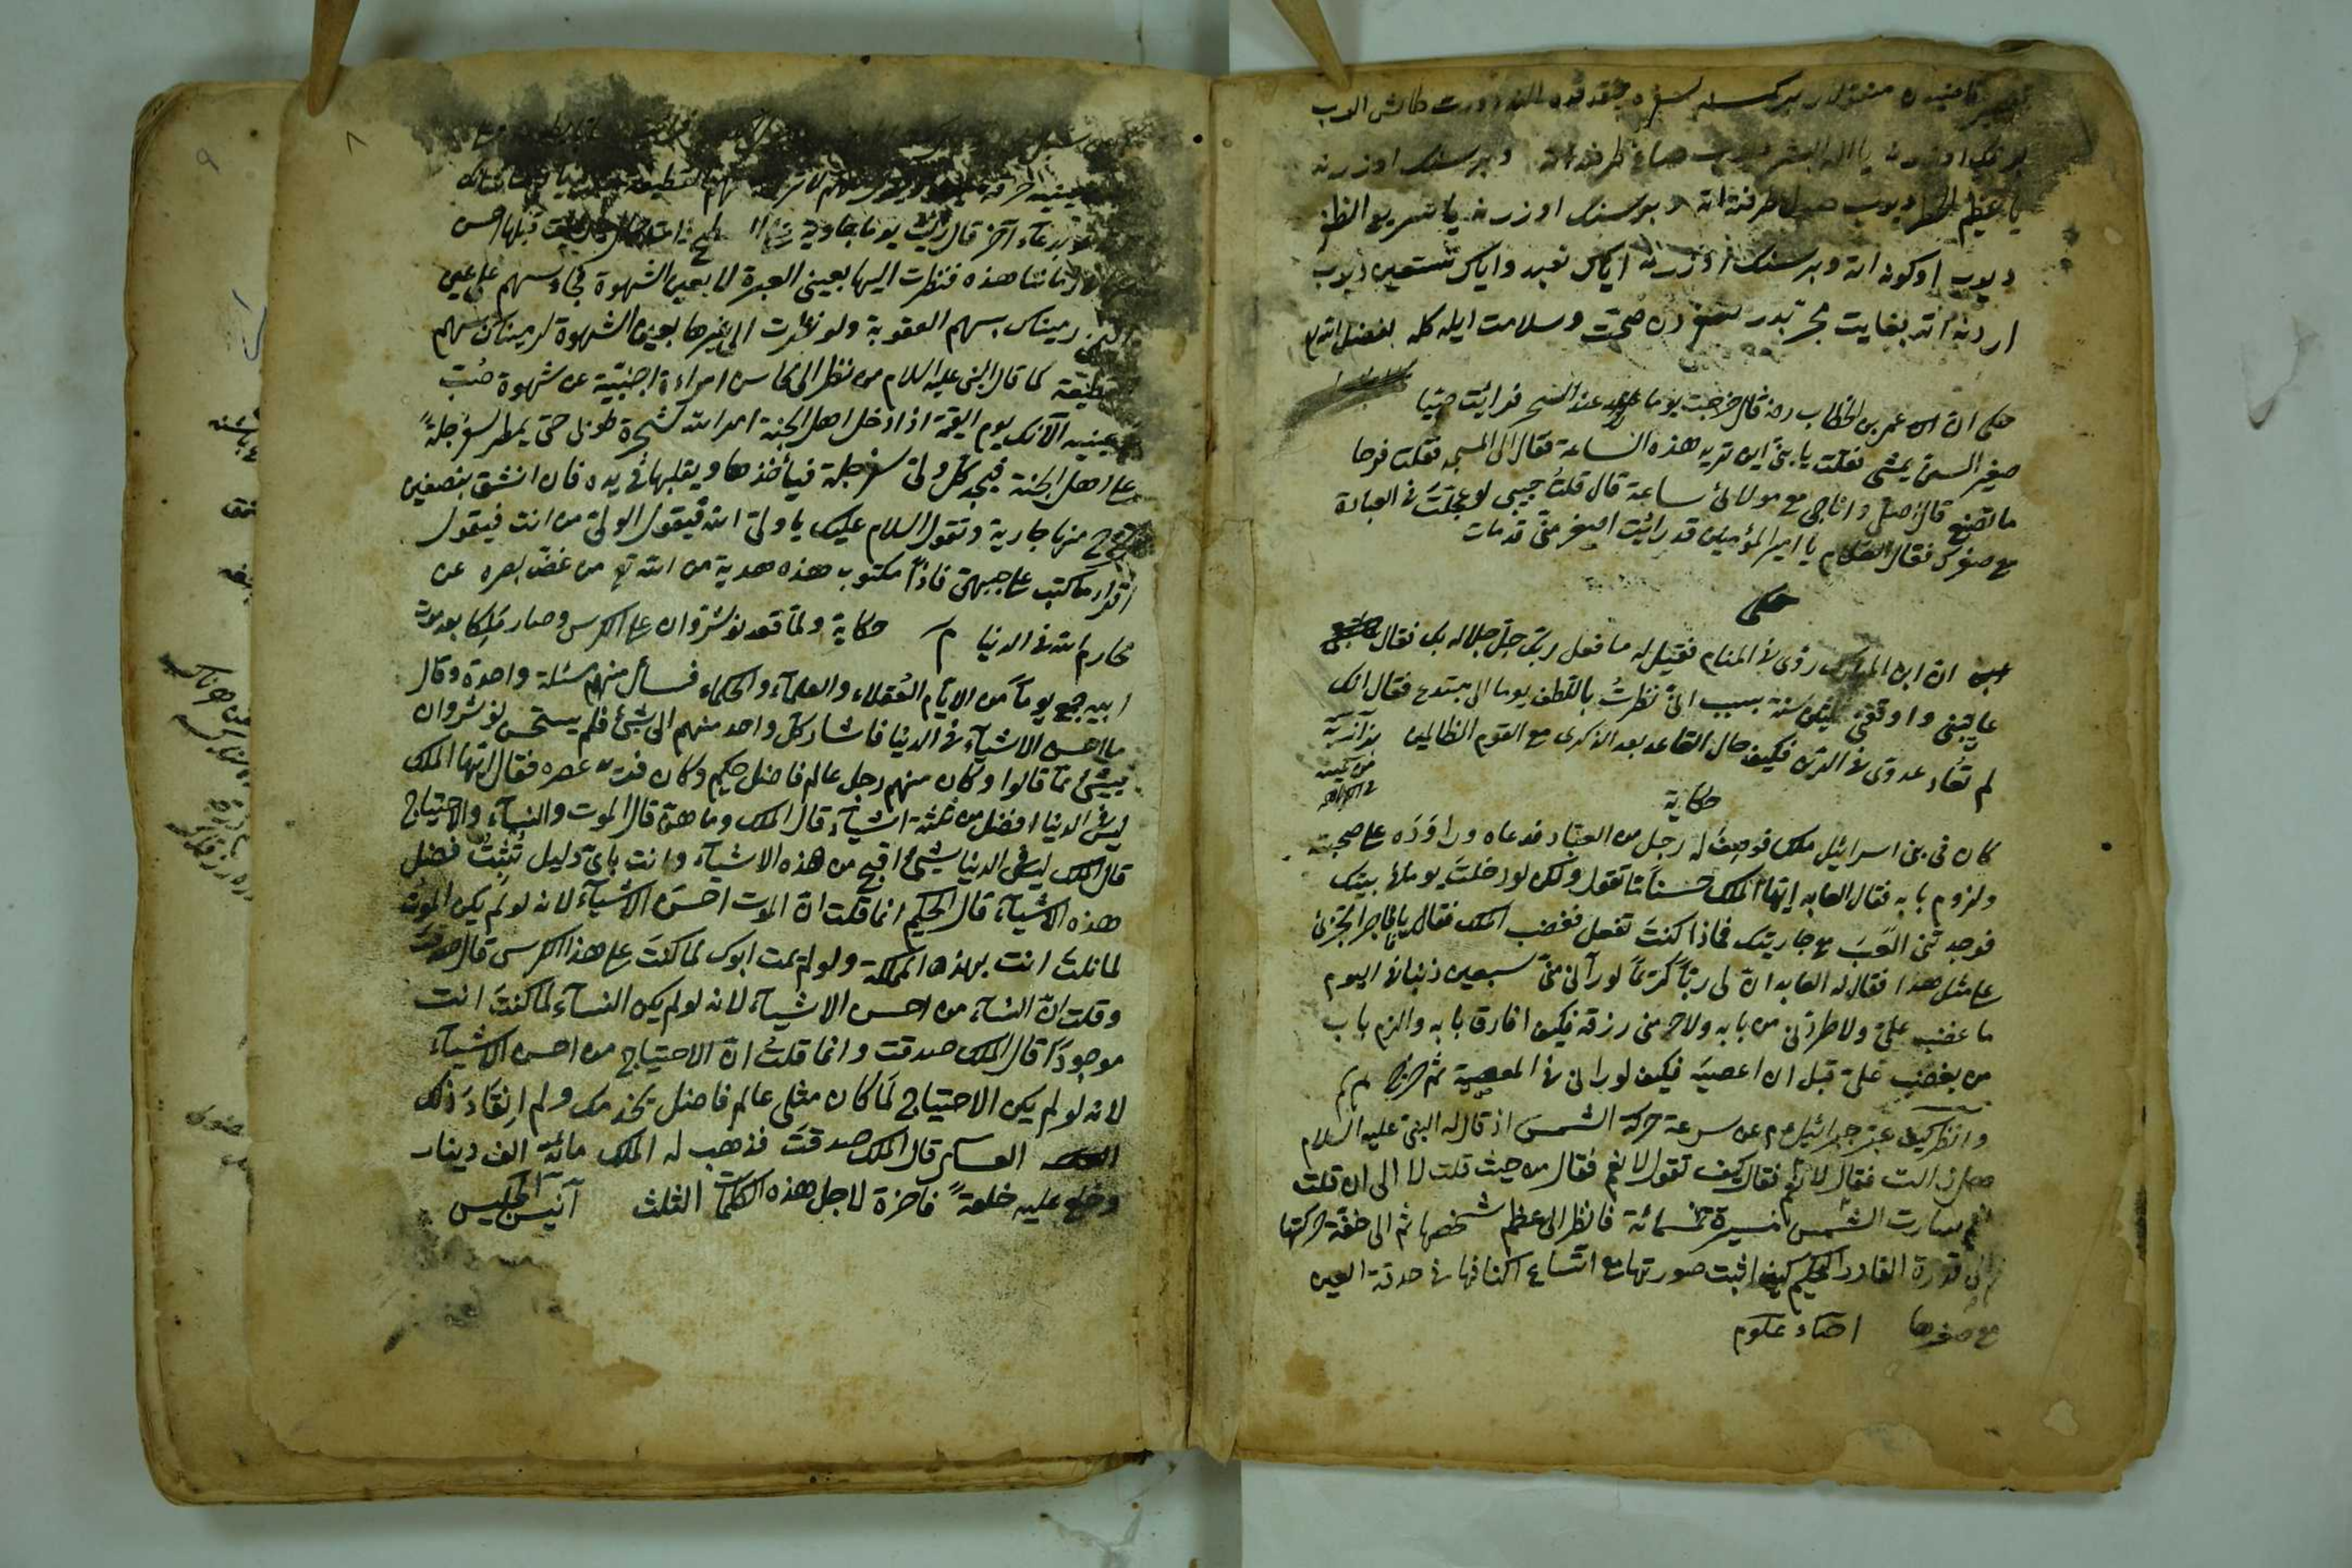 يا عظيم الخطر ديوب صول طرفنه اته و بر سنك اوزرنه يا سريع الظفر
ديوب اوكونه اته و بر سنك اوزرنه اياك نعبد واياك نستعين ديوب
اردنه اته بغايت مجربدر سفردن صحت وسلامت ايله كله بفضل الله
حكى ان عمر بن الخطاب رضه قال خرجت يوما عند السحر فرايت صبيا
صغير السن يمشى فقلت يا بنى اين تريد هذه الساعة فقال الى المسجد فقلت فيها
ما تصنع قال اصلى واناجى مع مولائى ساعة قال قلت حبيبى لو عجلت فى العبادة
مع صغرك فقال الغلام يا امير المؤمنين قد رايت اصغر منى قد مات
حكى
ان ابن المبارك رؤى فى المنام فقيل له ما فعل ربك جل جلاله بك فقال
عاتبنى واوقفنى ثلثين سنة بسبب انى نظرت باللطف يوما الى مبتدع فقال انك
لم تعاد عدوى فى الدين فكيف حال القاعد بعد الذكرى مع القوم الظالمين بزازية
حكاية
كان فى بنى اسرائيل ملك فوصف له رجل من العباد فدعاه وراوده على صحبته
ولزوم بابه فقال العابد ايها الملك حسنا ما تقول ولكن لو دخلت يوما فى بيتك
فوجدتنى العب مع جاريتك فماذا كنت تفعل فغضب الملك فقال يا فاجر اتجترئ
على مثل هذا فقال له العابد ان لى ربا كريما لو رآنى منى سبعين ذنبا فى اليوم
ما غضب على ولا طردنى من بابه ولا حرمنى رزقه فكيف افارق بابه والزم باب
من يغضب على قبل ان اعصيه فكيف لو رانى فى المعصية ثم خرج
وانظر كيف عبر جبرائيل عم عن سرعة حركة الشمس اذ قال له النبى عليه السلام
هل زالت فقال لا نعم فقال كيف تقول لا نعم فقال من حيث قلت لا الى ان قلت
نعم سارت الشمس مسيرة خمسمائة فانظر الى عظم شخصها ثم الى خفة حركتها
ثم الى قدرة القادر الحكيم كيف اثبت صورتها مع اتساع اكنافها فى حدقة العين
مع صغرها احياء علوم
٨
آخر قال رايت يوما جارية
زماننا هذه فنظرت اليها بعين العبرة لا بعين الشهوة فجاء سهم على عينى
رميناك بسهم العقوبة ولو نظرت الى غيرها بعين الشهوة لرميناك بسهم
القطيعة كما قال النبى عليه السلام من نظر الى محاسن امراءة اجنبية عن شهوة صب
فى عينيه الآنك يوم القيمة اذا دخل اهل الجنة امر الله شجرة طوبى حتى يمطر سفرجلة
على اهل الجنة فيجد كل ولى سفرجلة فيأخذها ويقلبها فى يده فان انشق بنصفين
تخرج منها جارية وتقول السلام عليك يا ولى الله فيقول الولى من انت فيقول
اقرأ ما كتب على جبهتى فاذا مكتوب هذه هدية من الله تع من غض بصره عن
محارم الله فى الدنيا م حكاية ولما قعد نوشروان على الكرسى وصار ملكا بعد موت
ابيه جمع يوما من الايام العقلاء والعلمآء والحكماء فسأل منهم مسئلة واحدة وقال
ما احسن الاشيآء فى الدنيا فاشار كل واحد منهم الى شئ فلم يستحسن نوشروان
بشئ مما قالوا وكان منهم رجل عالم فاضل حكيم وكان فريد عصره فقال ايها الملك
ليس فى الدنيا افضل من ثلثة اشيآء قال الملك وما هى قال الموت والنسآء والاحتياج
قال الملك ليس فى الدنيا شئ اقبح من هذه الاشيآء وانت باى دليل تثبت فضل
هذه الاشيآء قال الحكيم انما قلت ان الموت احسن الاشيآء لانه لو لم يكن الموت
لما نلت انت بهذه المملكة ولو لم يمت ابوك لما كنت على هذا الكرسى قال صدقت
وقلت ان النسآء من احسن الاشيآء لانه لو لم يكن النسآء لما كنت انت
موجودا قال الملك صدقت وانما قلت ان الاحتياج من احسن الاشيآء
لانه لو لم يكن الاحتياج لما كان مثلى عالم فاضل يخدمك ولم انقاد ذلك
العساكر قال الملك صدقت فذهب له الملك مائة الف دينار
وخلع عليه خلعة فاخرة لاجل هذه الكلمات الثلث انيس الجليس
٩